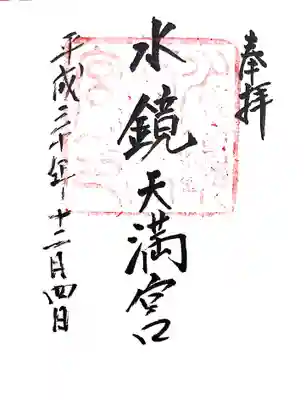 奉拝
水鏡天満宮
平成三十年十二月四日